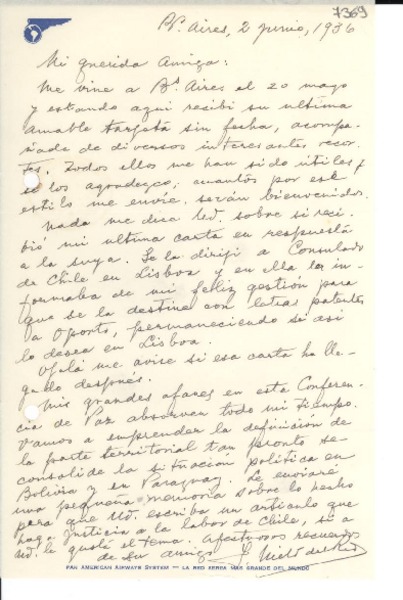 7369
Bs. Aires, 2 junio, 1936
Mi querida Amiga:
Me vine a Bs. Aires el 20 mayo
y estando aqui recibi su ultima
amable tarjeta sin fecha, acompa-
ñada de diversos interesantes recor-
tes. Todos ellos me han sido útiles y
se los agradezco; cuantos por este
estilo me envie, serán bienvenidos.
Nada me dice Ud. sobre si reci-
bió mi ultima carta en respuesta
a la suya. Se la dirijí a Consulado
de Chile en Lisboa y en ella la in-
formaba de mi feliz gestión para
que se la destine con letras patentes
a Oporto, permaneciendo si asi
lo desea en Lisboa.
Ojala me avise si esa carta ha lle-
gado después.
Mis grandes afanes en esta Conferen-
cia de Paz absorven todo mi tiempo.
Vamos a emprender la definición de
la parte territorial tan pronto se
consolide la situación política en
Bolivia y en Paraguay. Le enviaré
una pequeña memoria sobre lo hecho
para que Ud. escriba un articulo que
haga justicia a la labor de Chile, si a
Ud. le gusta el tema. Afectuosos recuerdos
de su amigo F. Nieto del Río
PAN AMERICAN AIRWAYS SYSTEM — LA RED AEREA MAS GRANDE DEL MUNDO